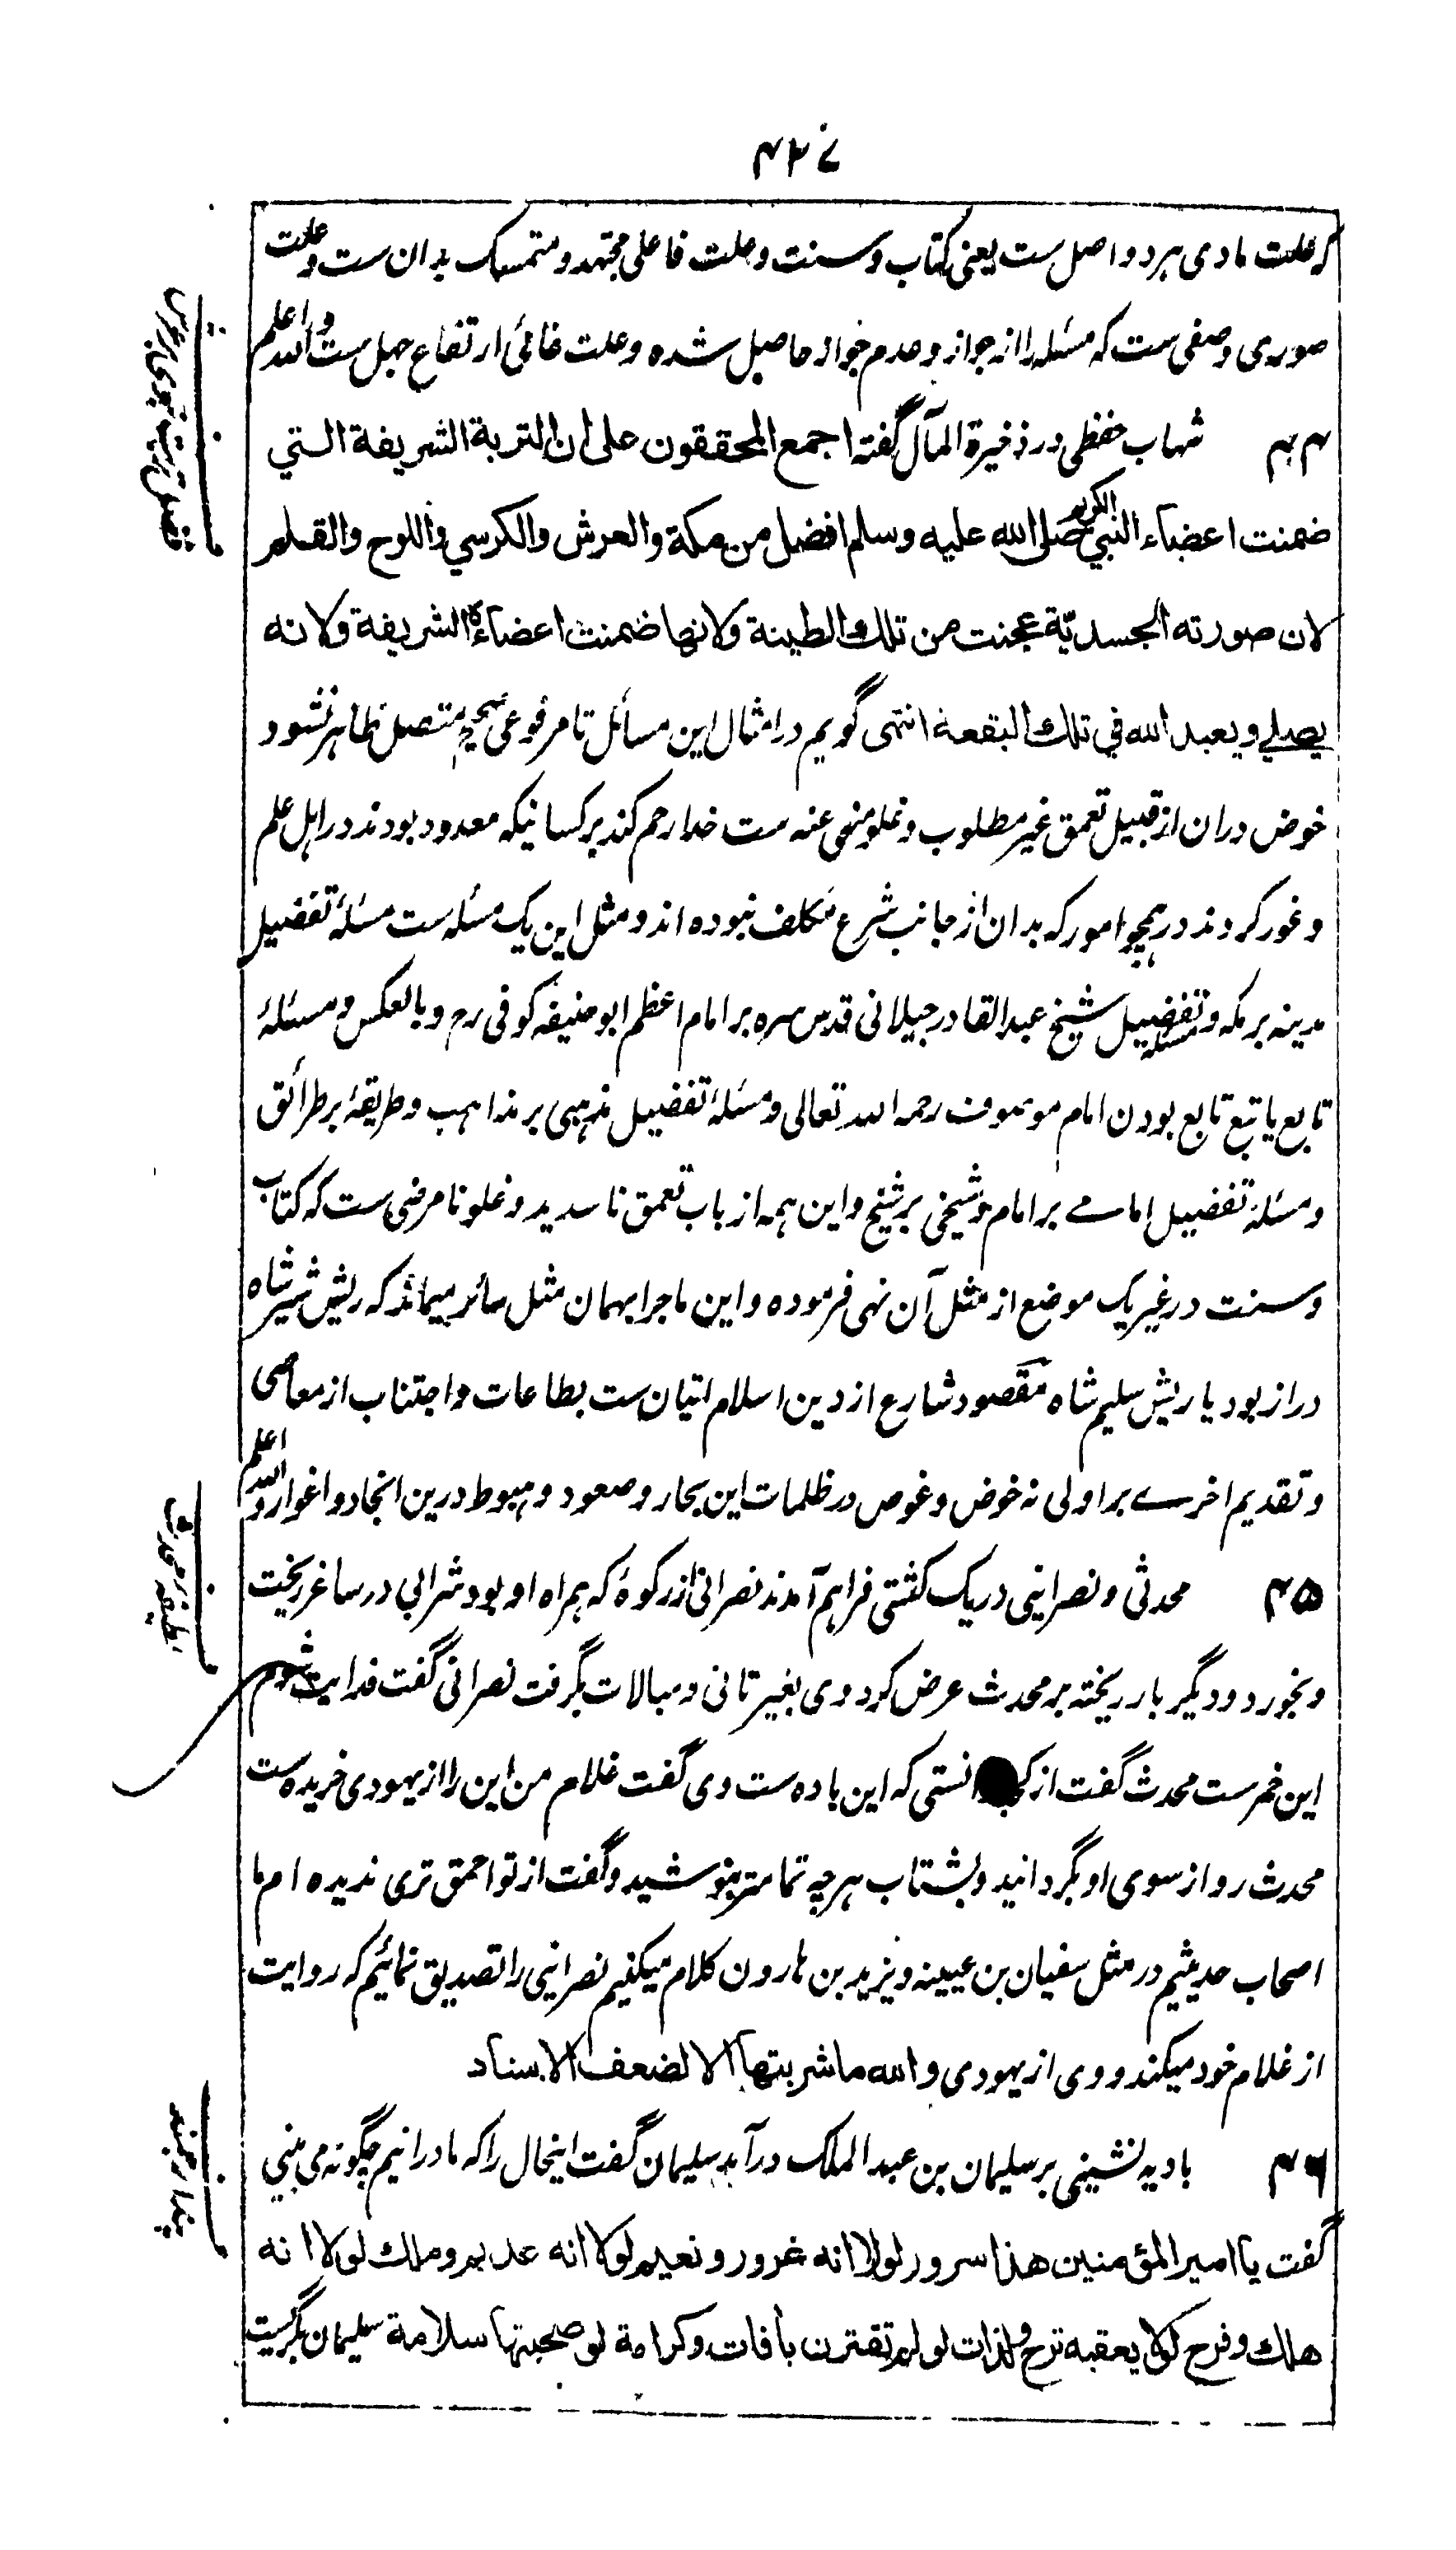 ۴۲۷
که علت مادی هر دو اصل ست یعنی کتاب و سنت و علت فاعلی مجتهد و متمسک بدان ست و علت
صوری وصفی ست که مسئله را از جواز و عدم جواز حاصل شده و علت غائی ارتفاع جهل ست والله اعلم
۴۴ شهاب خفظی در ذخیرة المآل گفته اجمع المحققون علی ان التربة الشریفة التي
ضمنت اعضاء النبي الکریم صلی الله علیه وسلم افضل من مکة والعرش والکرسي واللوح والقلم
لان صورته الجسدیّة عجنت من تلك الطینة ولانها ضمنت اعضاءه الشریفة ولانه
یصلي ویعبد الله في تلك البقعة انتهی گویم در امثال این مسائل تا مرفوعی صحیح متصل ظاهر نشود
خوض دران از قبیل تعمق غیر مطلوب و غلو منهی عنه ست خدا رحم کند بر کسانیکه معدود بودند در اهل علم
و غور کردند در همچو امور که بدان از جانب شرع مکلف نبوده اند و مثل این یک مسئله ست مسئلهٔ تفضیل
مدینه بر مکه و مسئله تفضیل شیخ عبدالقادر جیلانی قدس سره بر امام اعظم ابو حنیفه کوفی رح و بالعکس و مسئلهٔ
تابع یا تبع تابع بودن امام موصوف رحمه الله تعالی و مسئلهٔ تفضیل مذهبی بر مذاهب و طریقهٔ بر طرائق
و مسئلهٔ تفضیل امامے بر امام و شیخی بر شیخ و این همه از باب تعمق ناسدید و غلو نامرضی ست که کتاب
و سنت در غیر یک موضع از مثل آن نهی فرموده و این ماجرا بهمان مثل سائر میماند که ریش شیر شاه
دراز بود یا ریش سلیم شاه مقصود شارع از دین اسلام اتیان ست بطاعات و اجتناب از معاصی
و تقدیم اخرے بر اولی نه خوض و غوص در ظلمات این بحار و صعود و هبوط درین انجاد و اغوار والله اعلم
۴۵ محدثی و نصرانیی در یک کشتی فراهم آمدند نصرانی از رکوهٔ که همراه او بود شرابی در ساغر ریخت
و بخورد و دیگر بار ریخته بر محدث عرض کرد وی بغیر تانی و مبالات بگرفت نصرانی گفت فدایت شوم
این خمر ست محدث گفت از کجا دانستی که این باده ست وی گفت غلام من این را از یهودی خریده ست
محدث رو از سوی او بگردانید و بشتاب هرچه تمامتر بنوشید و گفت از تو احمق تری ندیده ام ما
اصحاب حدیثیم در مثل سفیان بن عیینه و یزید بن هارون کلام میکنیم نصرانیی را تصدیق نمائیم که روایت
از غلام خود میکند و وی از یهودی والله ما شربتها الا لضعف الاسناد
۴۶ بادیه نشینی بر سلیمان بن عبدالملک درآمد سلیمان گفت اینحال را که ما درانیم چگونه می بینی
گفت یا امیر المؤمنین هذا سرور لولا انه غرور ونعیم لولا انه عدیم وملك لولا انه
هلك وفرح لولا یعقبه ترح ولذات لو لم تقترن بآفات وکرامة لو صحبتها سلامة سلیمان بگریست
فضل تربت نبوی بر عرش
لطیفه محدث
پند ارجمند